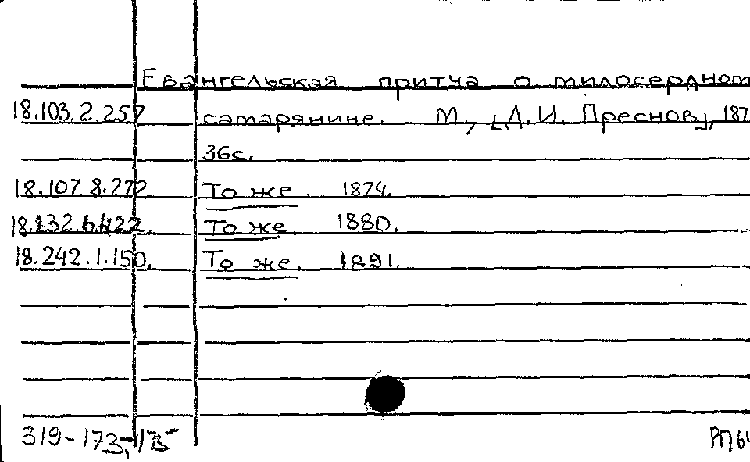 Евангельская притча о милосердном
18.103.2.257 самарянине. М., [Д.И. Преснов], 187
36с.
18.107.8.272 То же. 1874.
18.232.6.422. То же. 1880.
18.242.1.150. То же. 1891.
319-173,173 РП6